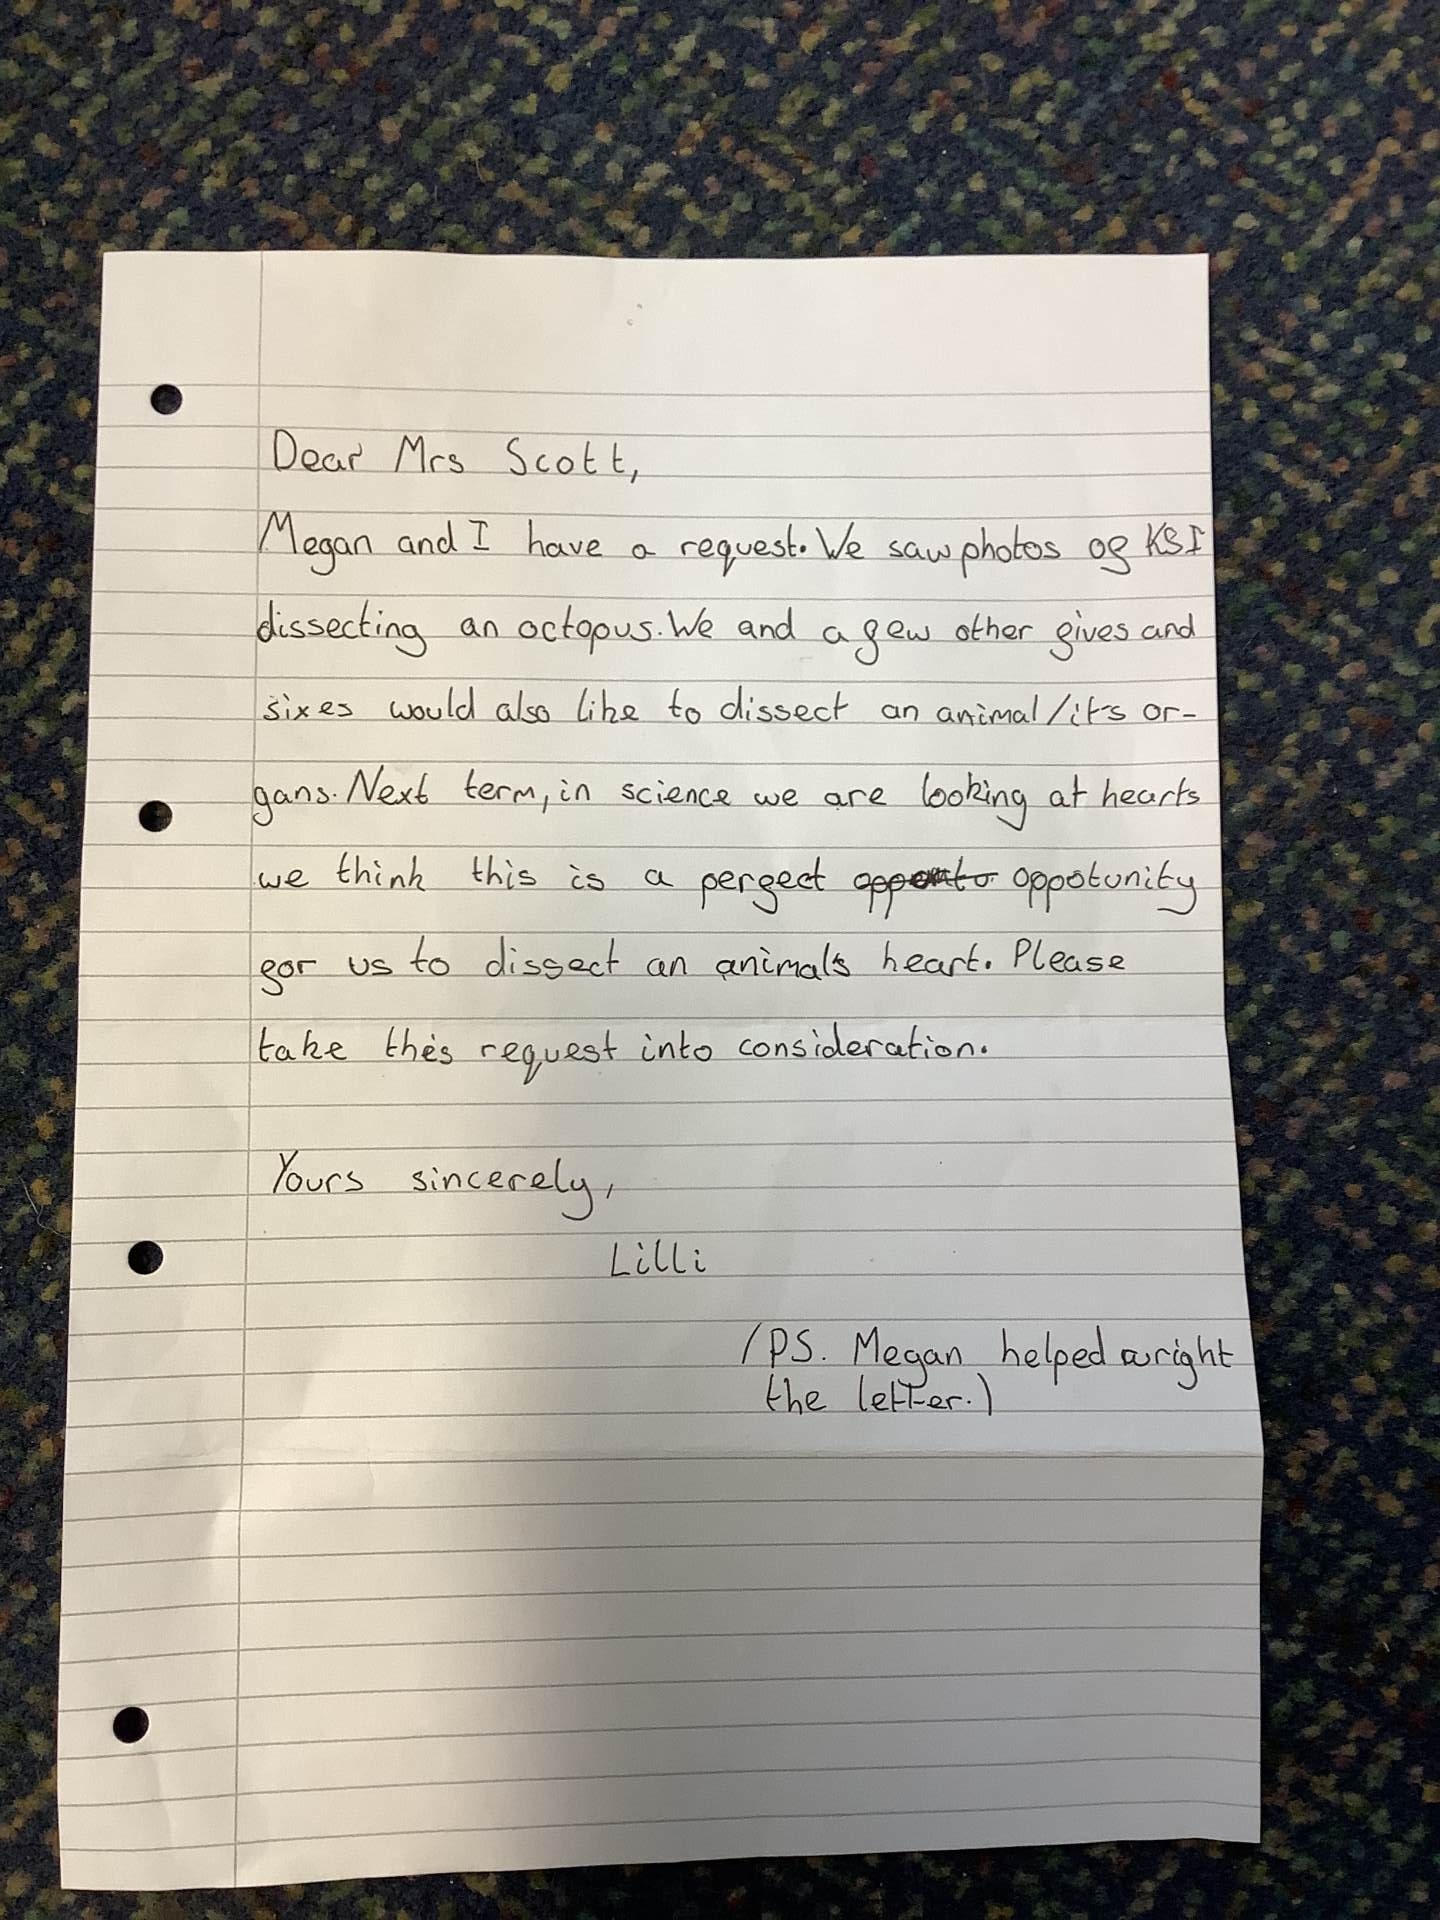 Dear Mrs Scott,
Megan and I have a request. We saw photos of KS1
dissecting an octopus. We and a few other fives and
sixes would also like to dissect an animal/it's or-
gans. Next term, in science we are looking at hearts
we think this is a perfect opporto oppotunity
for us to dissect an animals heart. Please
take this request into consideration.
Yours sincerely,
Lilli
(PS. Megan helped wright
the letter.)